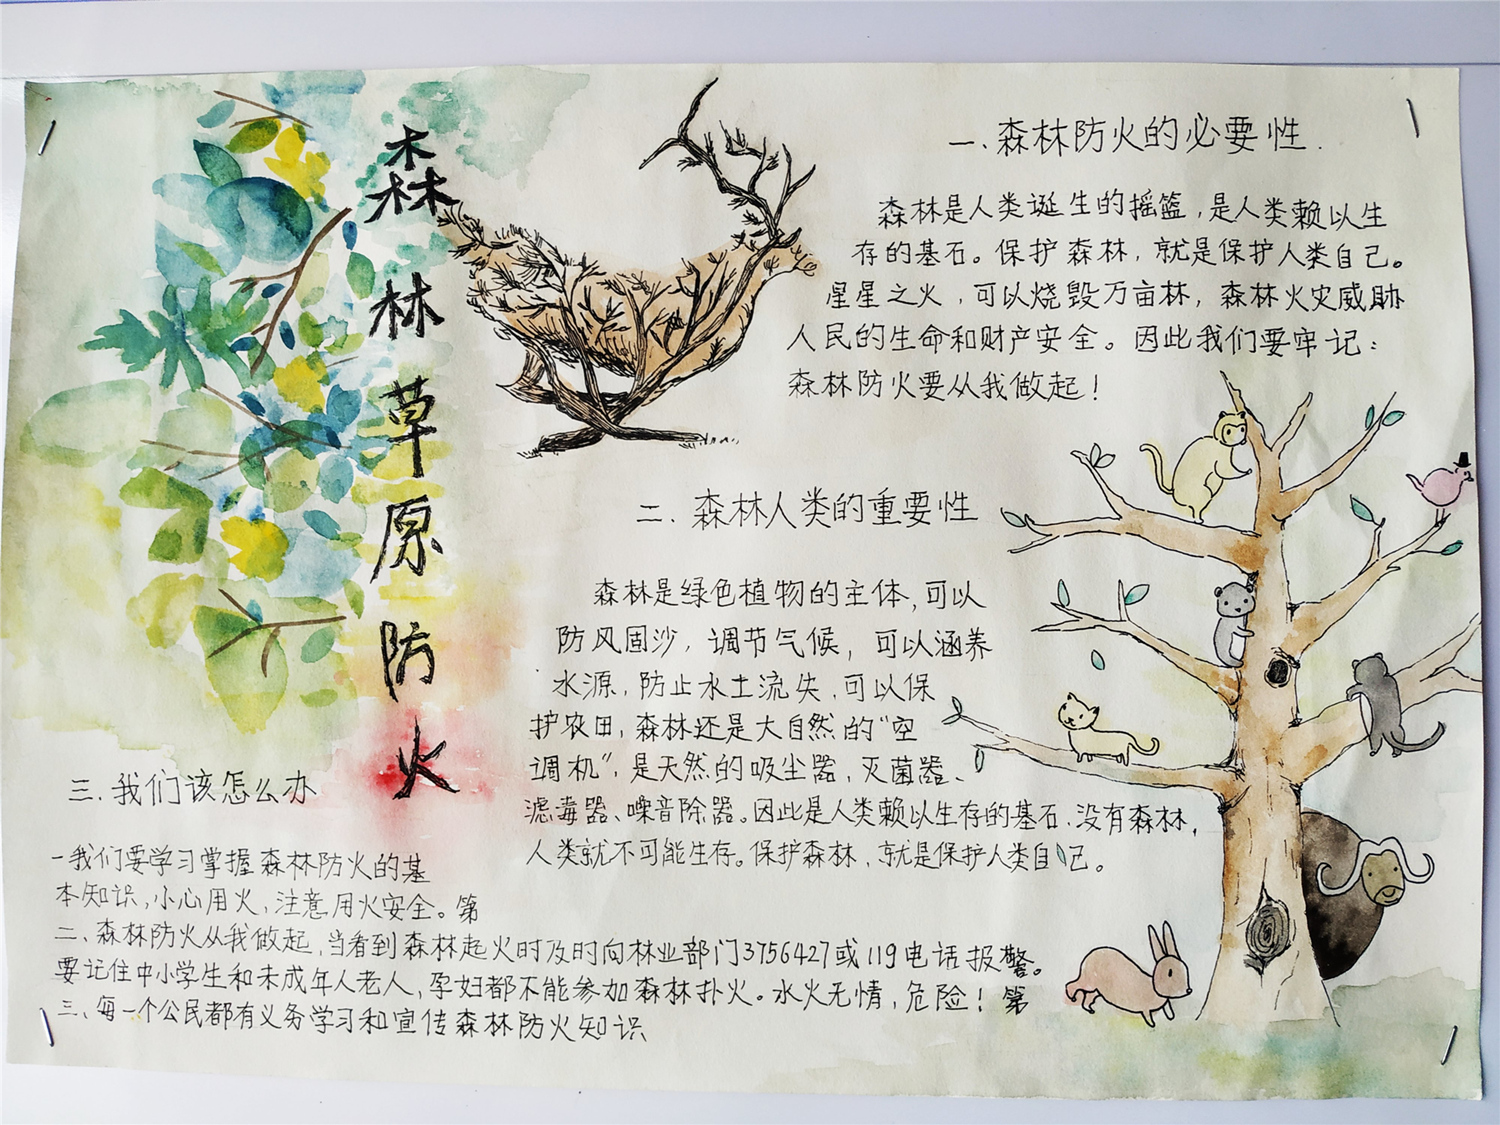 森林草原防火
一、森林防火的必要性.
森林是人类诞生的摇篮，是人类赖以生
存的基石。保护森林，就是保护人类自己。
星星之火，可以烧毁万亩林，森林火灾威胁
人民的生命和财产安全。因此我们要牢记：
森林防火要从我做起！
二、森林人类的重要性
森林是绿色植物的主体，可以
防风固沙，调节气候，可以涵养
水源，防止水土流失，可以保
护农田，森林还是大自然的“空
调机”，是天然的吸尘器，灭菌器、
滤毒器、噪音除器。因此是人类赖以生存的基石，没有森林，
人类就不可能生存。保护森林，就是保护人类自己。
三、我们该怎么办
一我们要学习掌握森林防火的基
本知识，小心用火，注意用火安全。第
二、森林防火从我做起，当看到森林起火时及时向林业部门3756427或119电话报警。
要记住中小学生和未成年人老人，孕妇都不能参加森林扑火。水火无情，危险！第
三、每一个公民都有义务学习和宣传森林防火知识